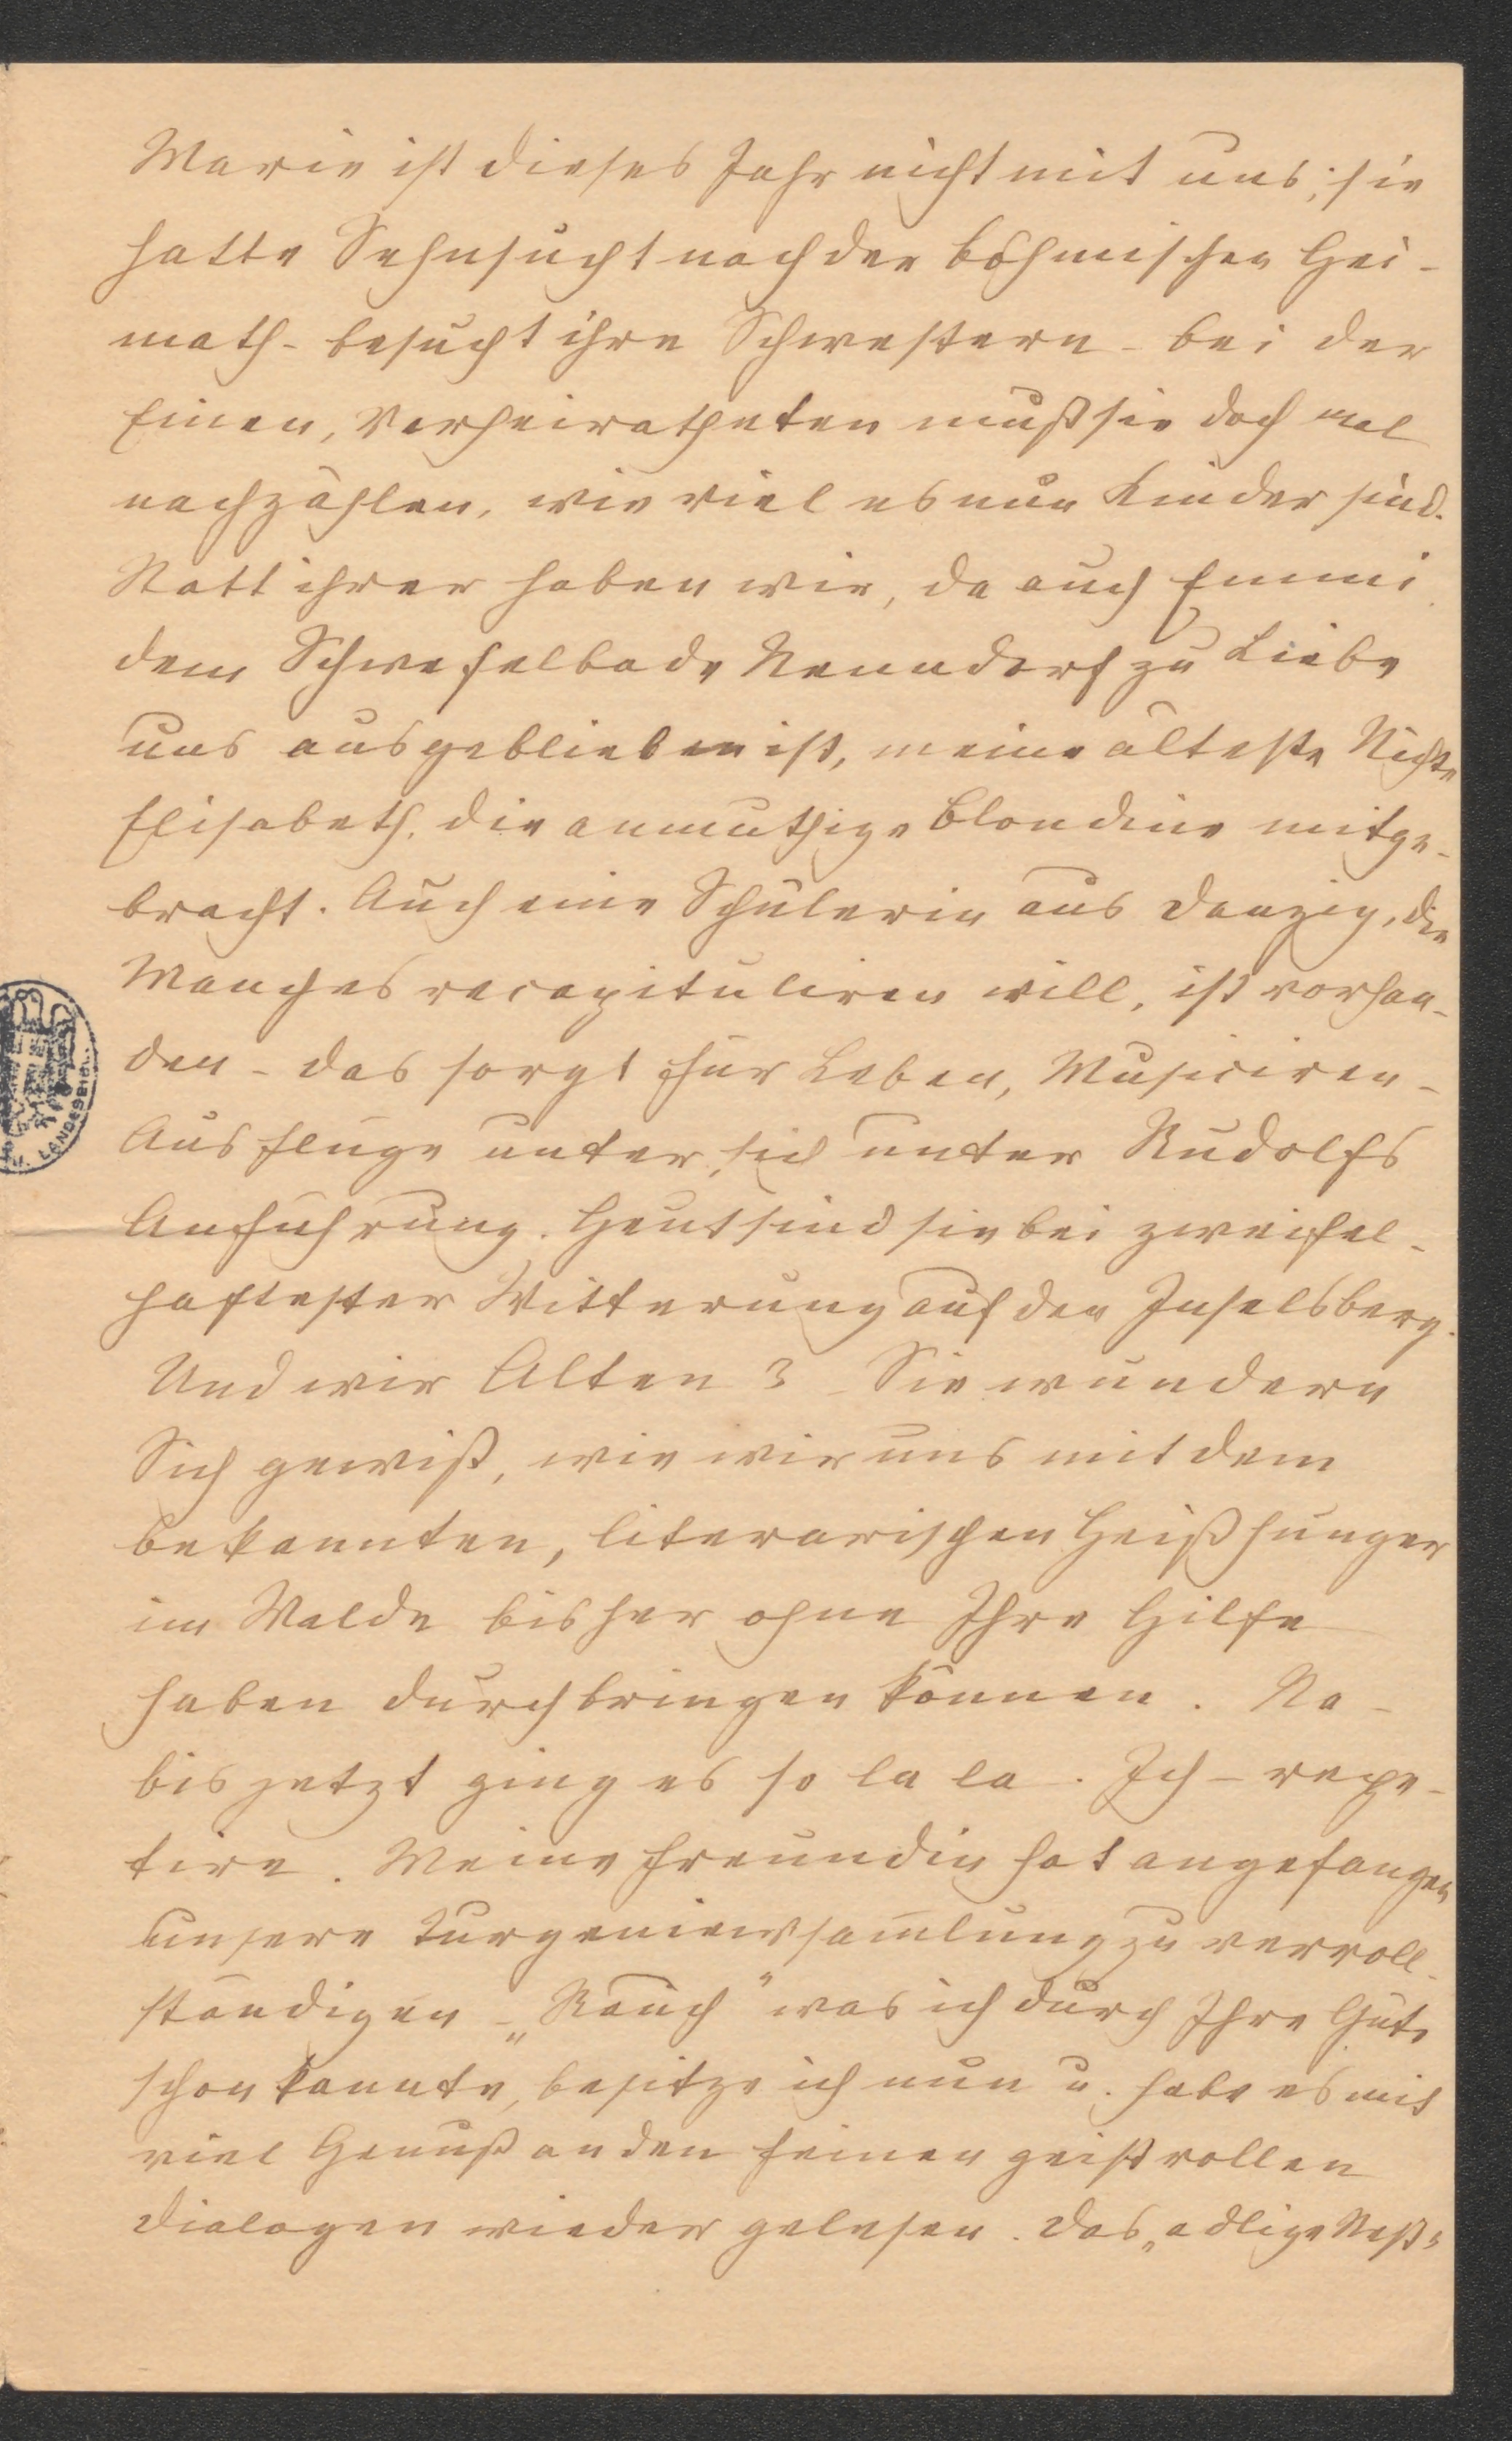 Marie ist dieses Jahr nicht mit uns; sie
hatte Sehnsucht nach der böhmischen Hei-
math - besucht ihre Schwestern - bei der
Einen, Verheiratheten muß sie doch mal
nachzählen, wie viel es nun Kinder sind.
Statt ihrer haben wir, da auch Emmi
dem Schwefelbade Nenndorf zu Liebe
uns ausgeblieben ist, meine älteste Nichte
Elisabeth, die anmuthige Blondine mitge-
bracht. Auch eine Schülerin aus Danzig, die
Manches recapituliren will, ist vorhan-
den - das sorgt für Leben, Musiciren -
Ausflüge unter sich unter Rudolfs
Anführung. Heut sind sie bei zweifel-
haftester Witterung auf den Inselsberg.
Und wir Alten? - Sie wundern
Sich gewiß, wie wir uns mit dem
bekannten, literarischen Heißhunger
im Walde bisher ohne Ihre Hilfe
haben durchbringen können. Na -
bis jetzt ging es so la la. Ich - repe-
tire. Meine Freundin hat angefangen
unsere Turgeniewsammlung zu vervoll-
ständigen - „Rauch" was ich durch Ihre Güte
schon kannte, besitze ich nun u. habe es mit
viel Genuß an den feinen geistvollen
Dialogen wieder gelesen. Das „adlige Nest"
LANDESBIBL.